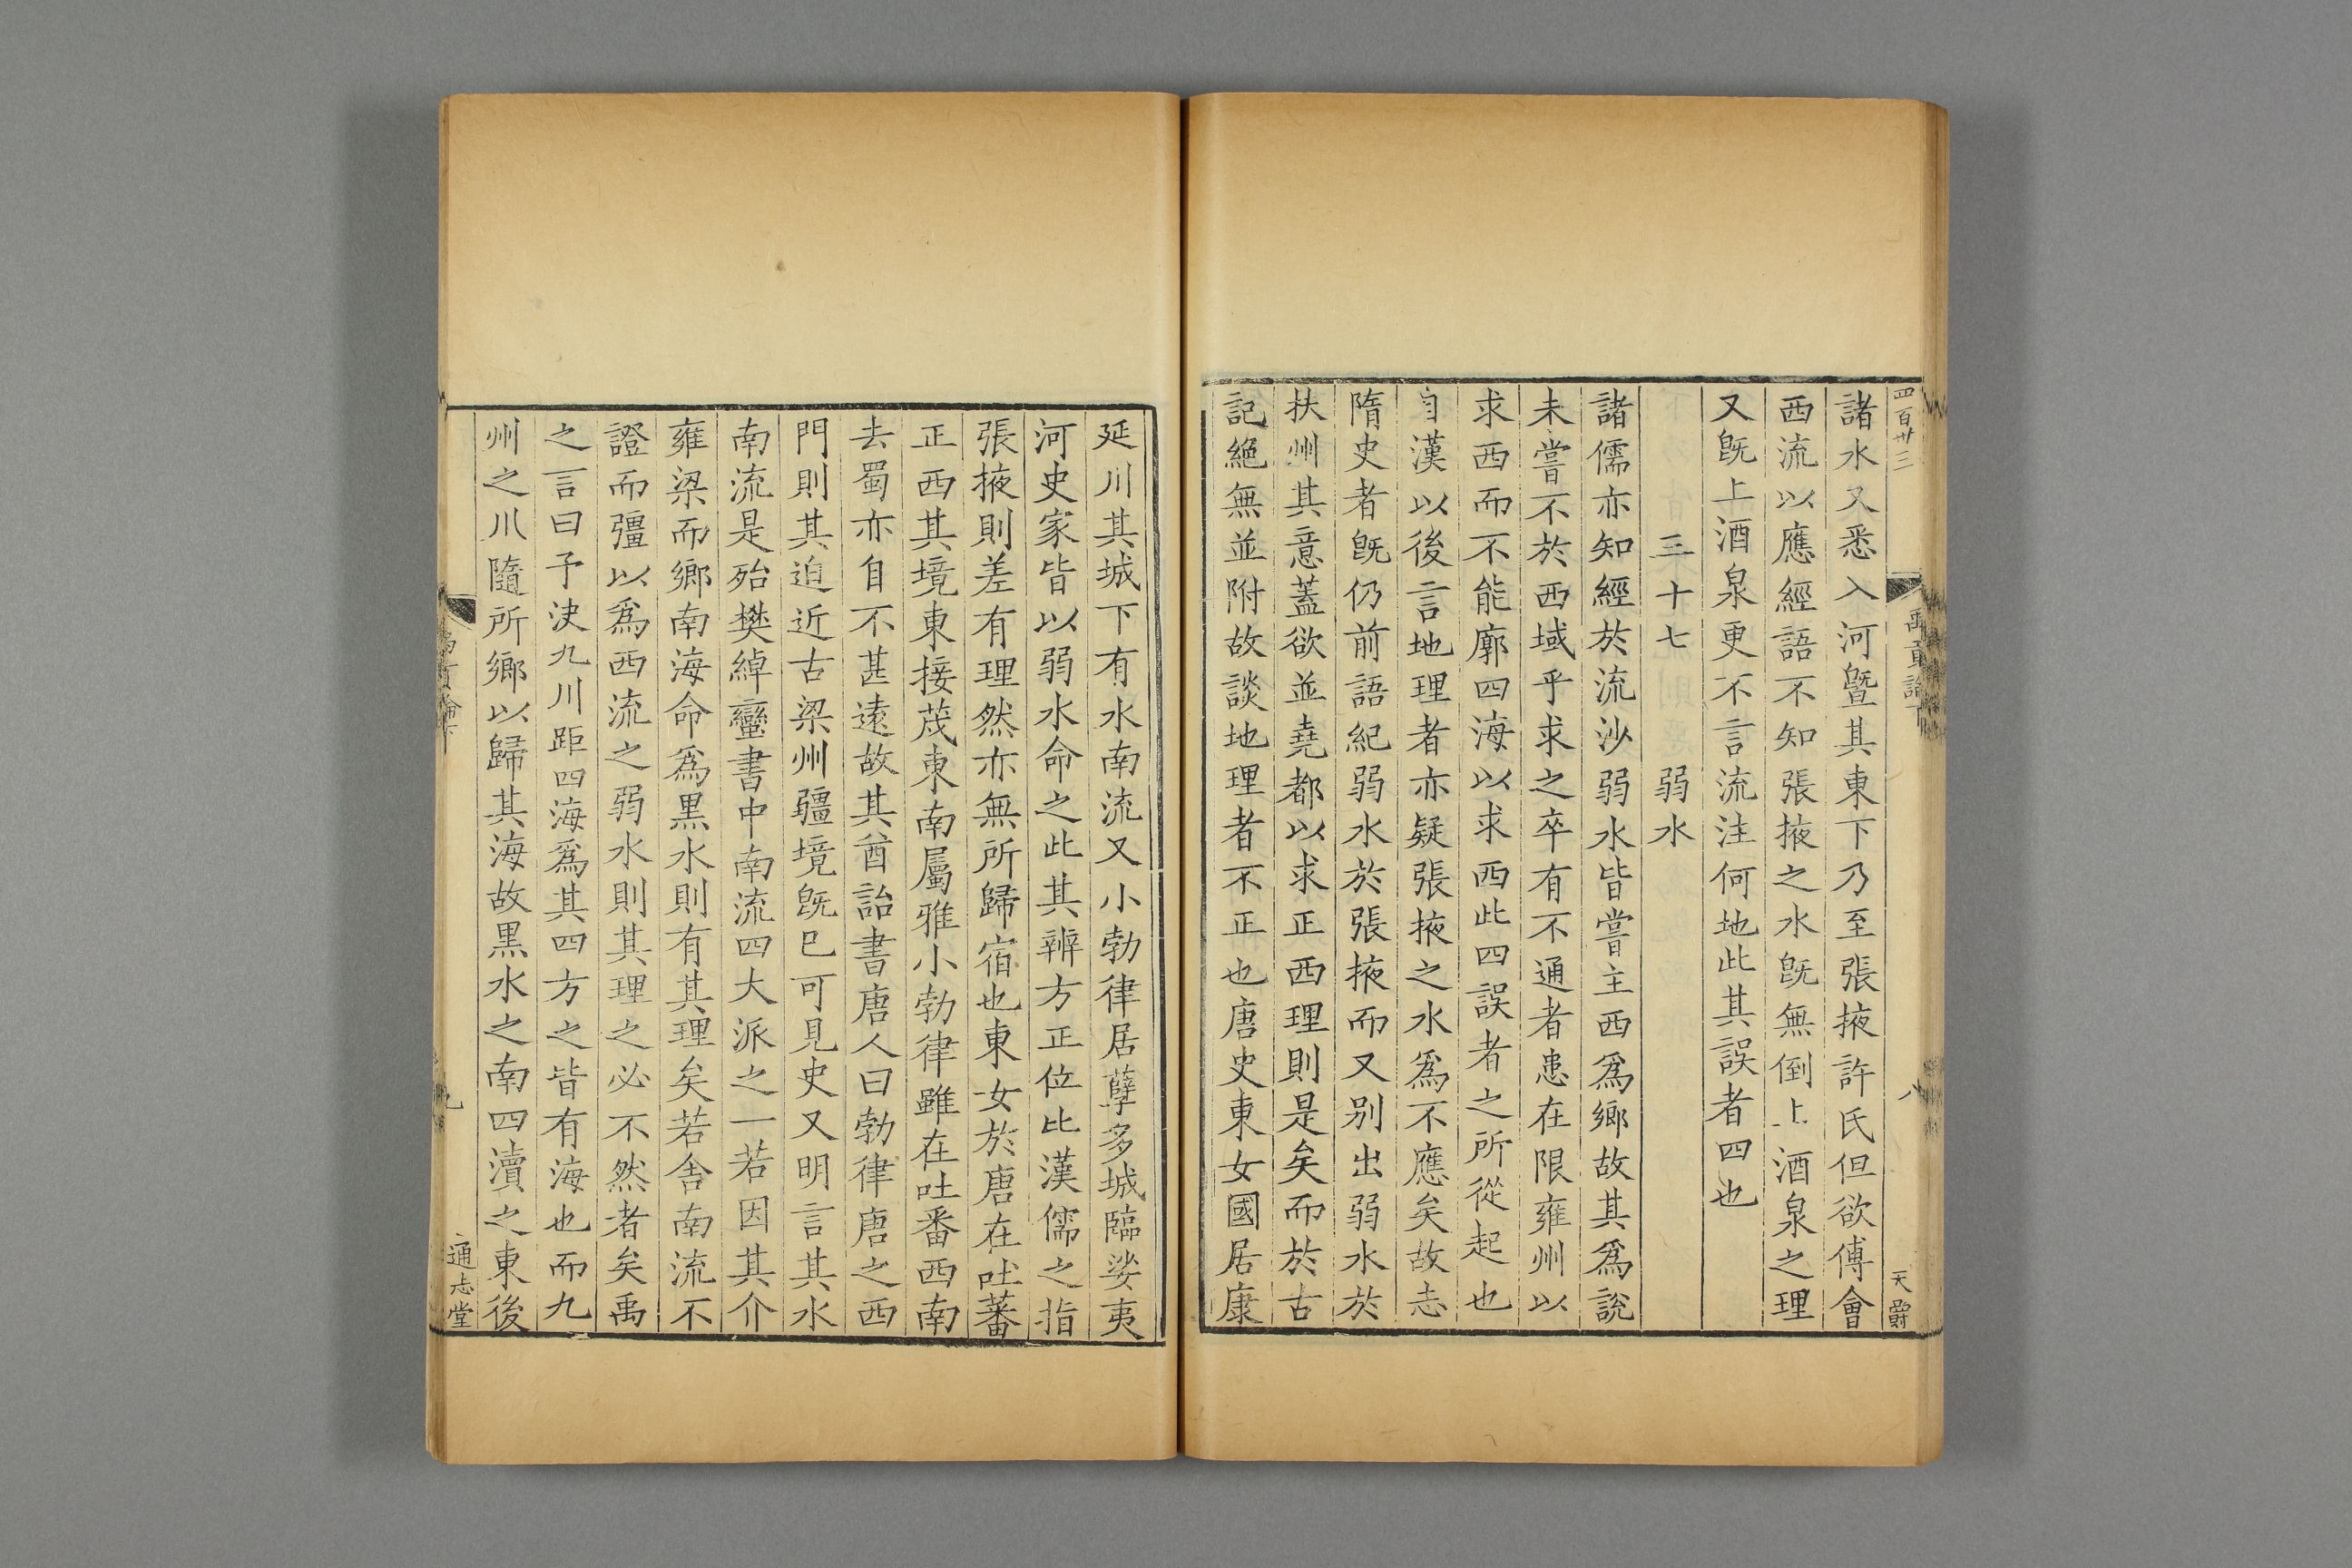 四百卅三
禹貢論下
八
天爵
諸水又悉入河曁其東下乃至張掖許氏但欲傅會
西流以應經語不知張掖之水旣無倒上酒泉之理
又旣上酒泉更不言流注何地此其誤者四也
三十七 弱水
諸儒亦知經於流沙弱水皆嘗主西爲鄉故其爲說
未嘗不於西域乎求之卒有不通者患在限雍州以
求西而不能廓四海以求西此四誤者之所從起也
自漢以後言地理者亦疑張掖之水爲不應矣故志
隋史者旣仍前語紀弱水於張掖而又别出弱水於
扶州其意蓋欲並堯都以求正西理則是矣而於古
記絕無並附故談地理者不正也唐史東女國居康
延川其城下有水南流又小勃律居孽多城臨娑夷
河史家皆以弱水命之此其辨方正位比漢儒之指
張掖則差有理然亦無所歸宿也東女於唐在吐蕃
正西其境東接茂東南屬雅小勃律雖在吐番西南
去蜀亦自不甚遠故其酋詒書唐人曰勃律唐之西
門則其迫近古梁州疆境旣巳可見史又明言其水
南流是殆樊綽蠻書中南流四大派之一若因其介
雍梁而鄉南海命爲黒水則有其理矣若舎南流不
證而彊以爲西流之弱水則其理之必不然者矣禹
之言曰予决九川距四海爲其四方之皆有海也而九
州之川隨所鄉以歸其海故黒水之南四瀆之東後
通志堂